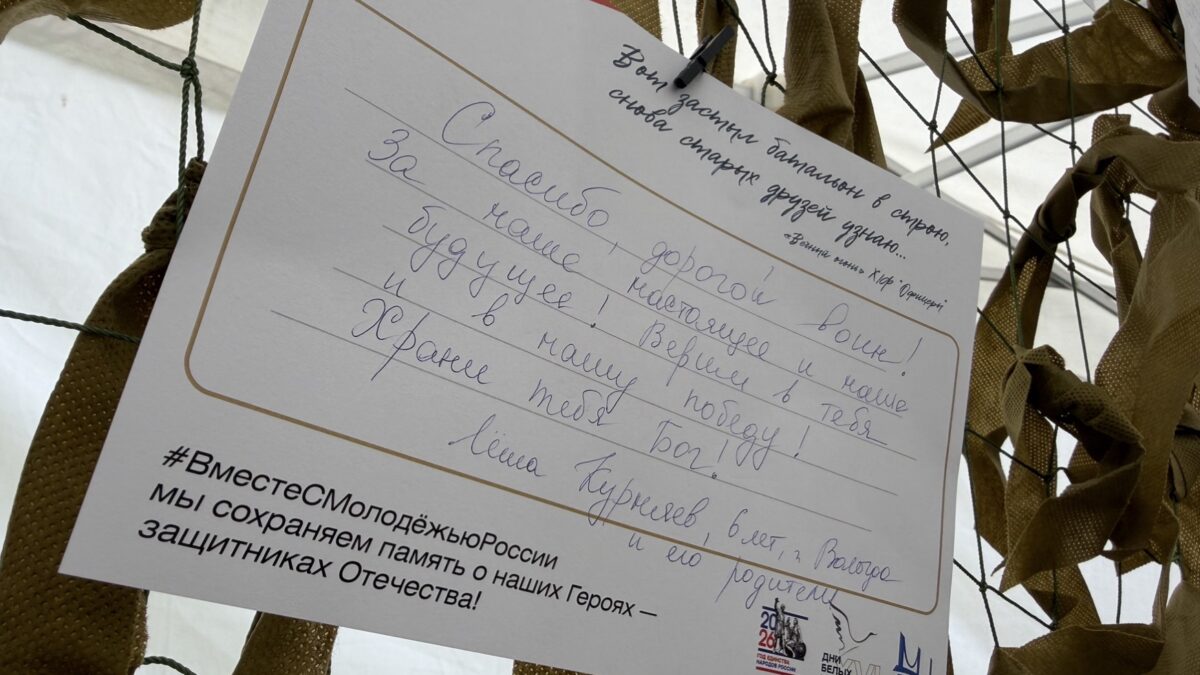 Вот застыл батальон в строю,
снова старых друзей узнаю...
«Вечный огонь» Х/ф "Офицеры"
Спасибо, дорогой воин!
За наше настоящее и наше
будущее! Верим в тебя
и в нашу победу!
Храни тебя Бог!
Лёша Курняев, 6 лет, г. Вологда
и его родители
#ВместеСМолодёжьюРоссии
мы сохраняем память о наших Героях —
защитниках Отечества!
20
26
ГОД ЕДИНСТВА
НАРОДОВ РОССИИ
ДНИ
БЕЛЫХ